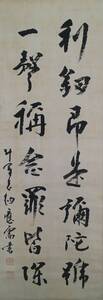 利劔即是彌陀號
一聲稱念罪皆除